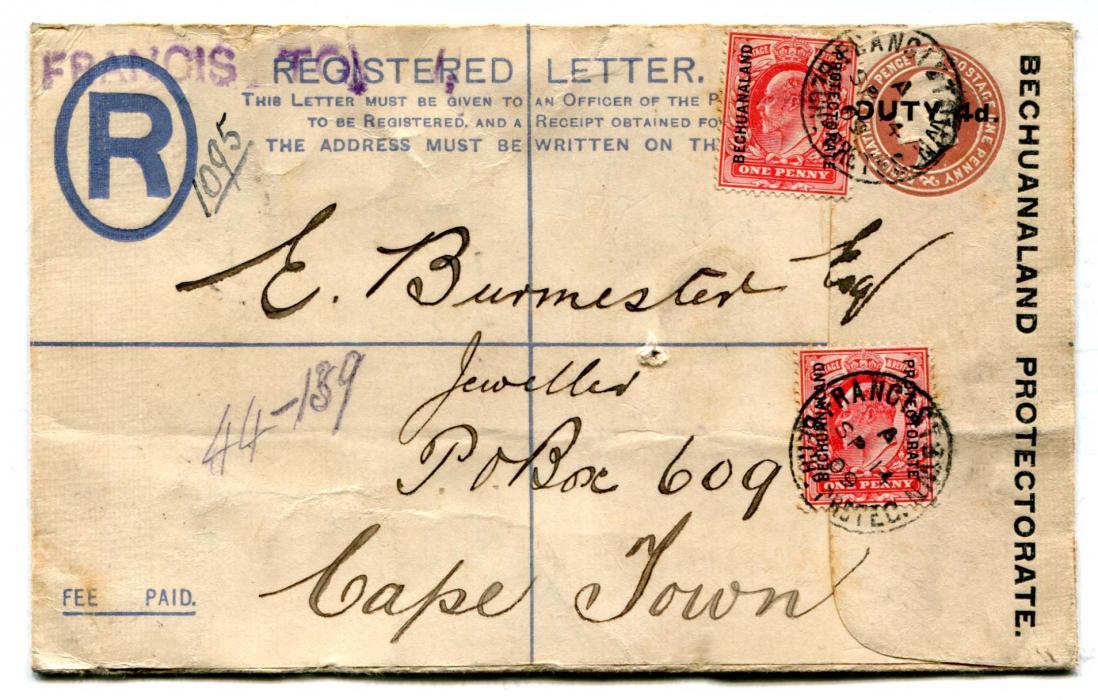 FRANCIS
REGISTERED LETTER.
THIS LETTER MUST BE GIVEN TO AN OFFICER OF THE P
TO BE REGISTERED, AND A RECEIPT OBTAINED FO
THE ADDRESS MUST BE WRITTEN ON TH
R
1095
BECHUANALAND PROTECTORATE
ONE PENNY
DUTY 4d.
POSTAGE ONE PENNY
PENCE
BECHUANALAND PROTECTORATE.
E. Burmester Esq
Jeweller
P O Box 609
Cape Town
44-189
BECHUANALAND PROTECTORATE
ONE PENNY
FRANCISTOWN
A
SP 14
09
FEE PAID.